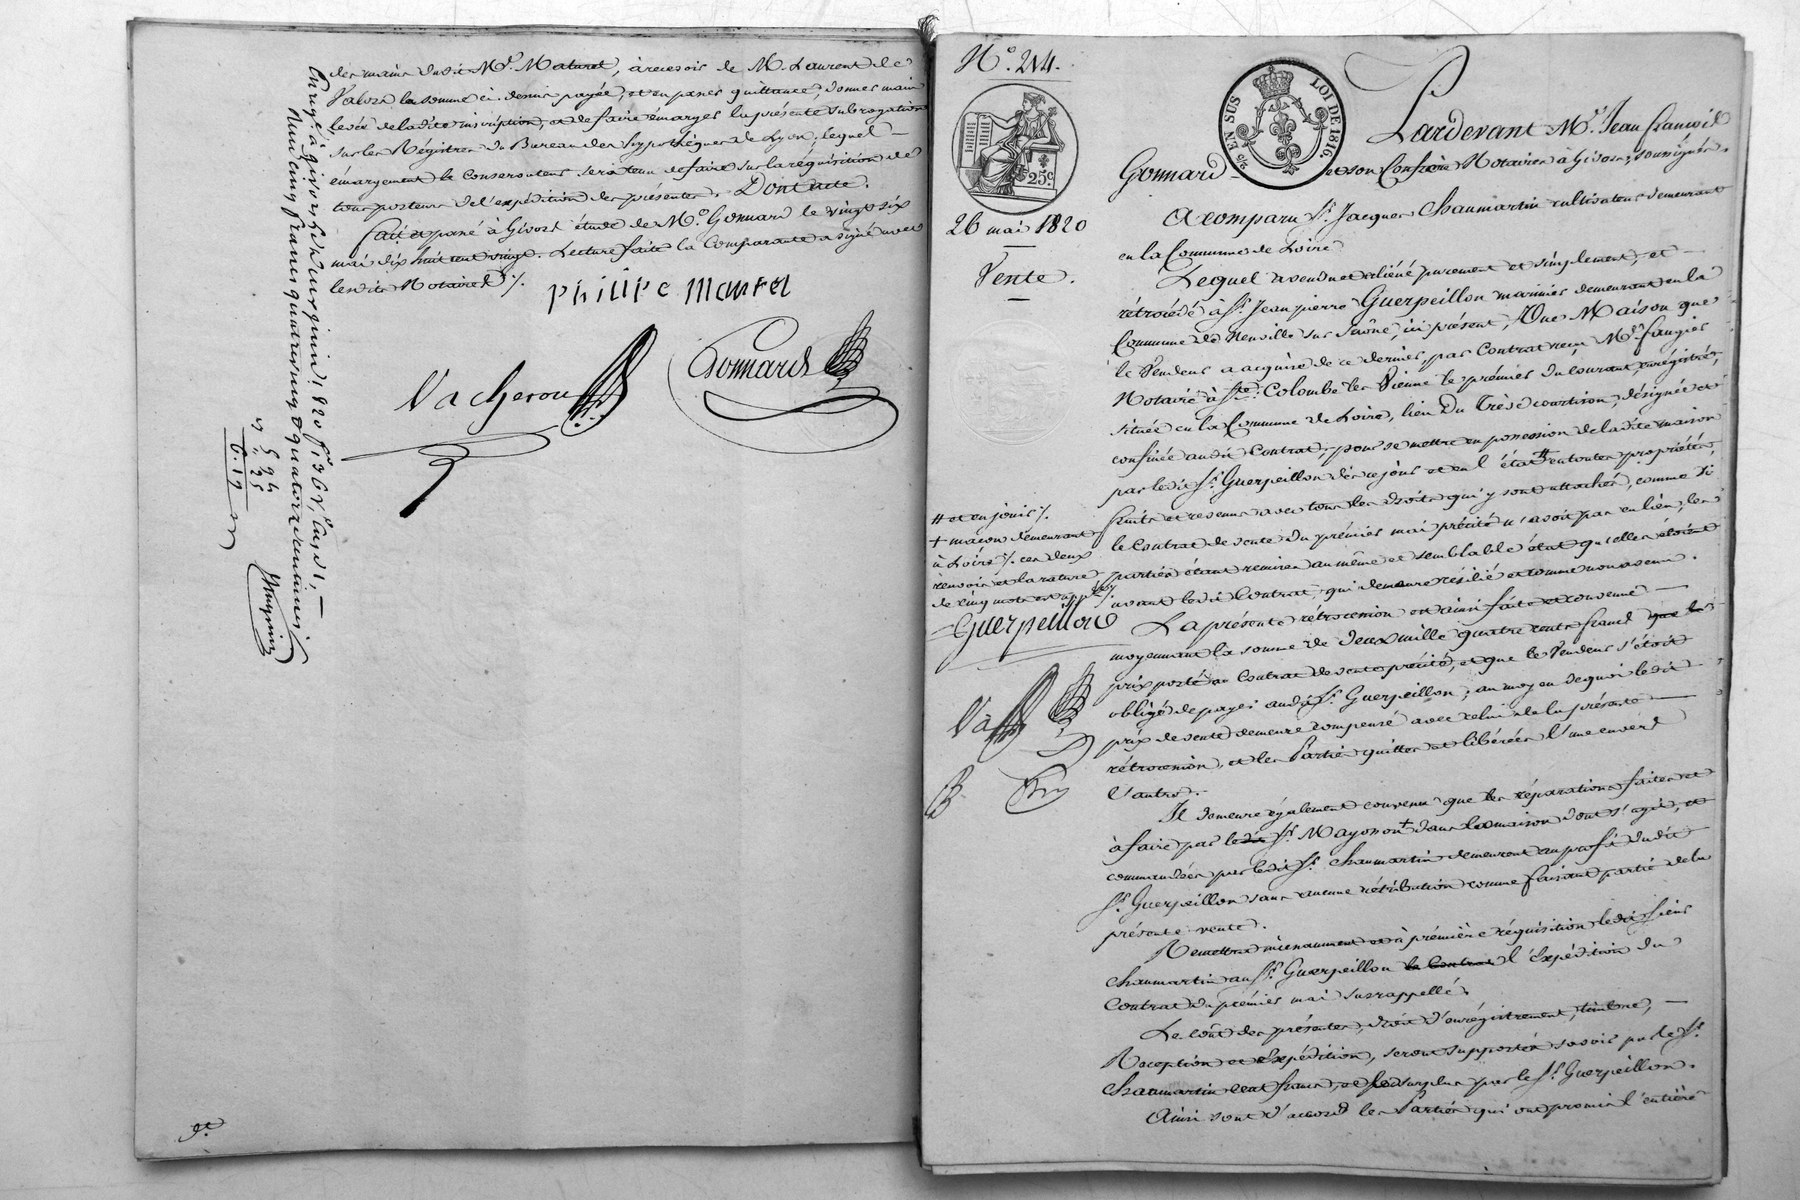 des mains dudit Mr. Maturel, à recevoir de M. Laurent de
Valors la somme ci-dessus payée, et en passer quittance, donner main
levée de ladite inscription, et de faire émarger la présente subrogation
sur les Régistres du Bureau des hypothèques de Lyon; lequel —
émargement le conservateur sera tenu de faire sur la réquisition de
tous porteurs de l'expédition des présentes. Dont acte.
Fait et passé à Givors étude de Me. Gonnard le vingt six
mai dix huit cent vingt. Lecture faite la Comparante a signé avec
lesdits Notaires ./.
Philipe Mantel
Vacheron
Gonnard
Enregé. à Givors le
juin 1820 fo. 136 Vo.
5 94
6.19
9e.
No. 214.
EN SUS
LOI DE 1816
25c.
26 mai 1820
Vente.
Pardevant Me. Jean françois
Gonnard et son Confrère Notaires à Givors, soussignés.
A comparu Sr. Jacques Chaumartin cultivateur demeurant
en la Commune de Loire
Lequel a vendu et aliéné purement et simplement, et —
rétrocédé à Sr. Jean pierre Guerpeillon marinier demeurant en la
Commune de Neuville sur Saône, ici présent, Une Maison que
le Vendeur a acquise de ce dernier, par Contrat reçu Me. faugier
Notaire à Ste. Colombe les Vienne le premier du courant, enrégistré,
située en la Commune de Loire, lieu du Trève courtison, désignée et
confinée audit Contrat; pour se mettre en possession de ladite maison
par ledit Sr. Guerpeillon dès ce jour et en l'état # en toutes propriétés,
fruits et revenus avec tous les droits qui y sont attachés, comme si
le Contrat de vente du premier mai précité n'avoit pas eu lieu, les
parties étant remises au même et semblable état qu'elles étoient
avant ledit Contrat, qui demeure résilié et comme non avenu.
La présente rétrocession est ainsi faite et convenue —
moyennant la somme de deux mille quatre cents francs que le
prix porté au Contrat de vente précité, et que le Vendeur s'étoit
obligé de payer audit Sr. Guerpeillon; au moyen de quoi ledit
prix de vente demeure compensé avec celui de la présente —
rétrocession, et les Parties quittes et libérées l'une envers
l'autre.
Il demeure également convenu que les réparations faites et
à faire par ledit Sr. Mayonou + dans la maison dont s'agit, et
commandées par ledit Sr. Chaumartin demeurent au profit dudit
Sr. Guerpeillon sans aucune rétribution comme faisant partie de la
présente vente.
Remettra incessamment et à première réquisition ledit Sieur
Chaumartin au Sr. Guerpeillon le Contrat l'expédition du
Contrat du premier mai susrappellé.
Le coût des présentes, droit d'enrégistrement, timbre, —
Réception et expédition, seront supportés savoir par le Sr.
Chaumartin cent francs, et le surplus par le Sr. Guerpeillon.
Ainsi sont d'accord les Parties qui ont promis l'entière
# et en jouir ./.
+ maçon demeurant
à Loire ./. ces deux
renvois et la rature
de cinq mots est appée. ./.
Guerpeillon
Va